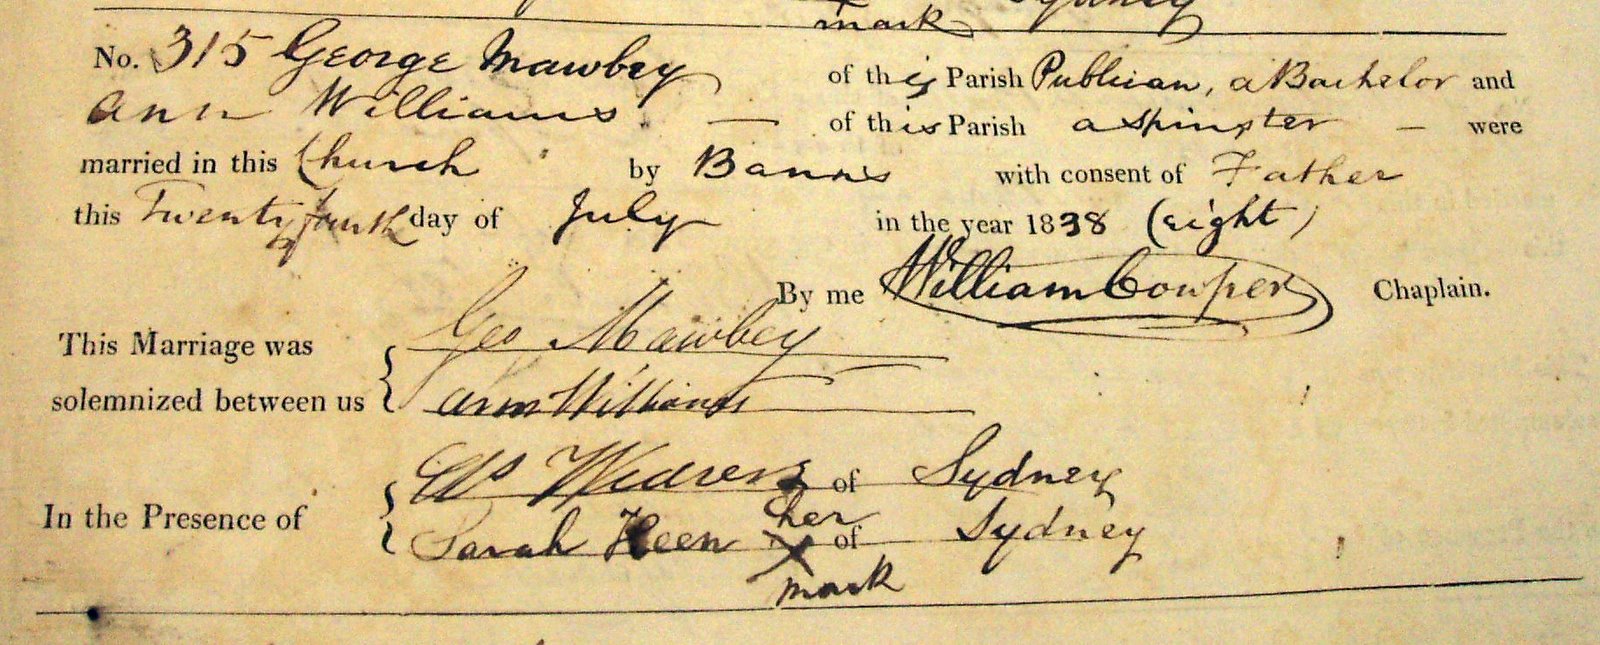 mark Sydney
No. 315 George Mawbey of this Parish Publican, a Bachelor and
Ann Williams — of this Parish a Spinster – were
married in this Church by Banns with consent of Father
this Twenty fourth day of July in the year 1838 (eight)
By me William Cowper Chaplain.
This Marriage was Geo Mawbey
solemnized between us Ann Williams
of Sydney
her
In the Presence of Sarah Keen X of Sydney
mark